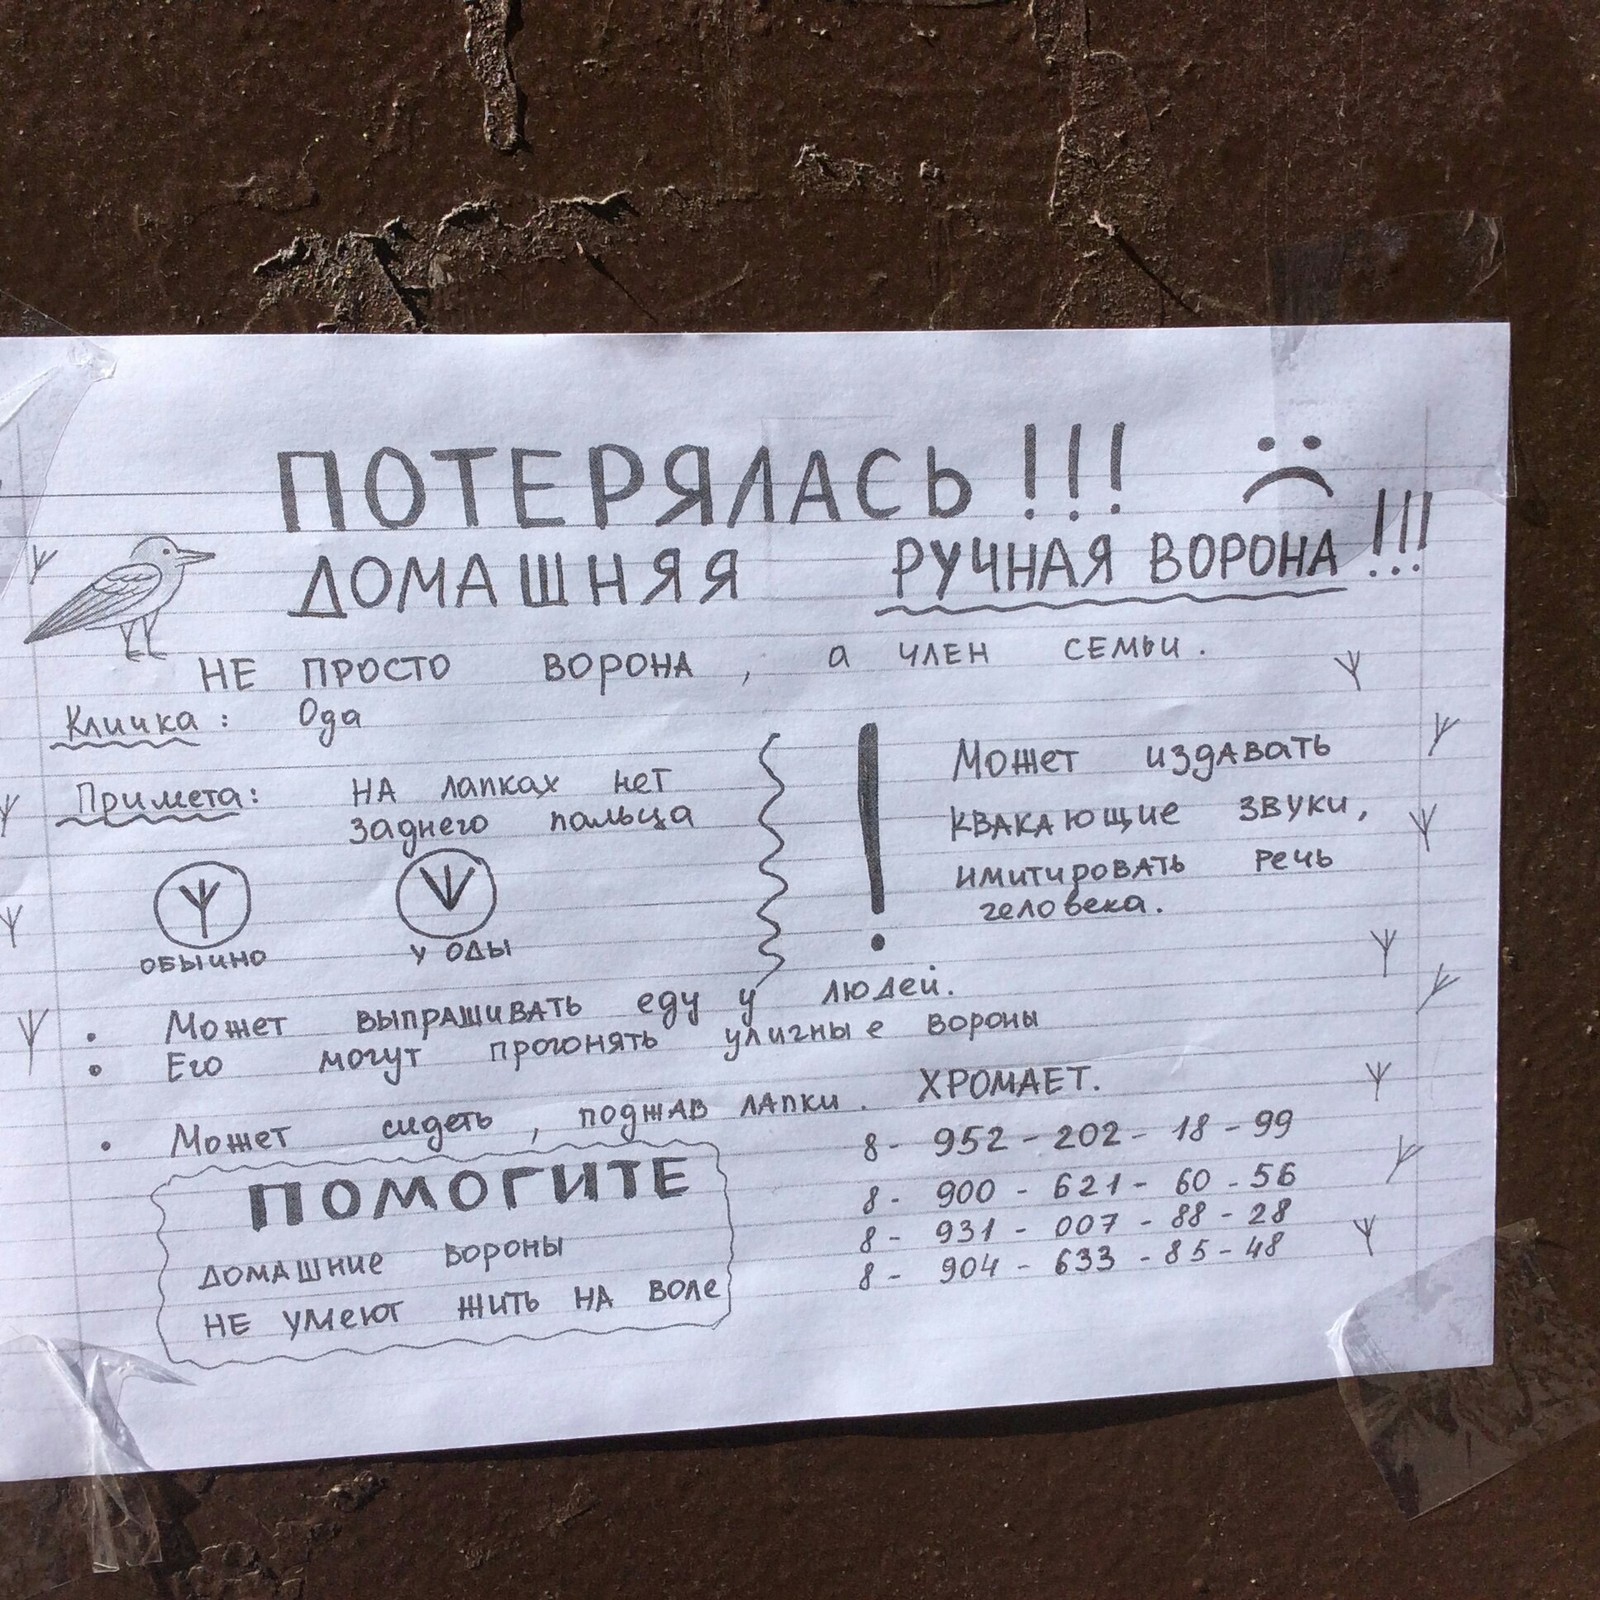 ПОТЕРЯЛАСЬ!!!
ДОМАШНЯЯ РУЧНАЯ ВОРОНА!!!
НЕ ПРОСТО ВОРОНА, а ЧЛЕН СЕМЬИ.
Кличка: Ода
Примета: НА лапках нет
заднего пальца
ОБЫЧНО
У ОДЫ
Может издавать
квакающие звуки,
имитировать речь
человека.
• Может выпрашивать еду у людей.
• Его могут прогонять уличные вороны
• Может сидеть, поджав лапки. ХРОМАЕТ.
ПОМОГИТЕ
домашние вороны
НЕ умеют жить НА воле
8-952-202-18-99
8-900-621-60-56
8-931-007-88-28
8-904-633-85-48